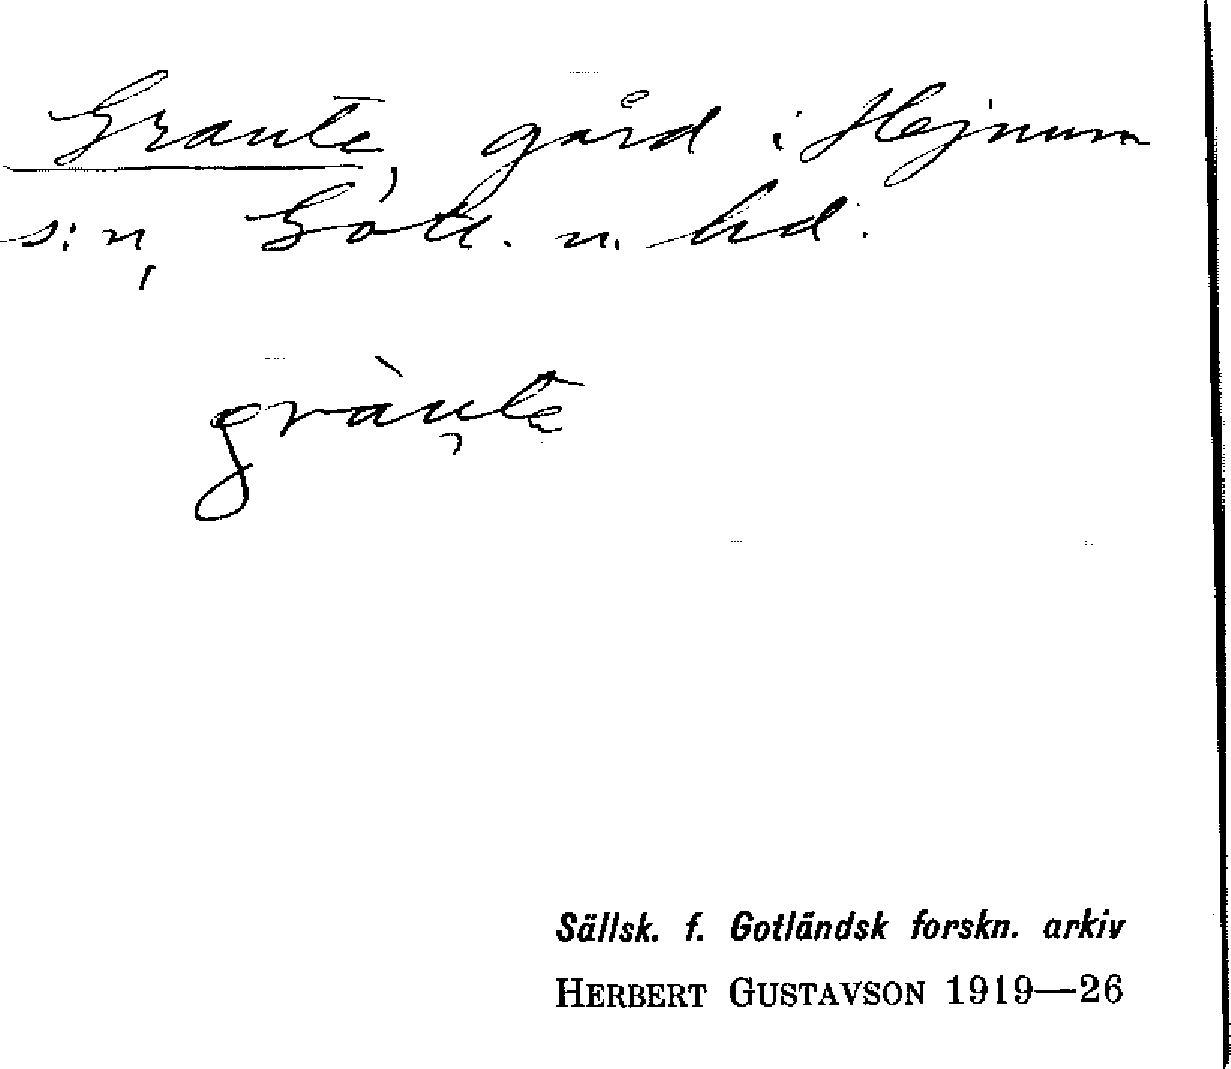 Graute, gård i Hejnum
s:n, Gotl. n. hd.
gràute
Sällsk. f. Gotländsk forskn. arkiv
HERBERT GUSTAVSON 1919—26